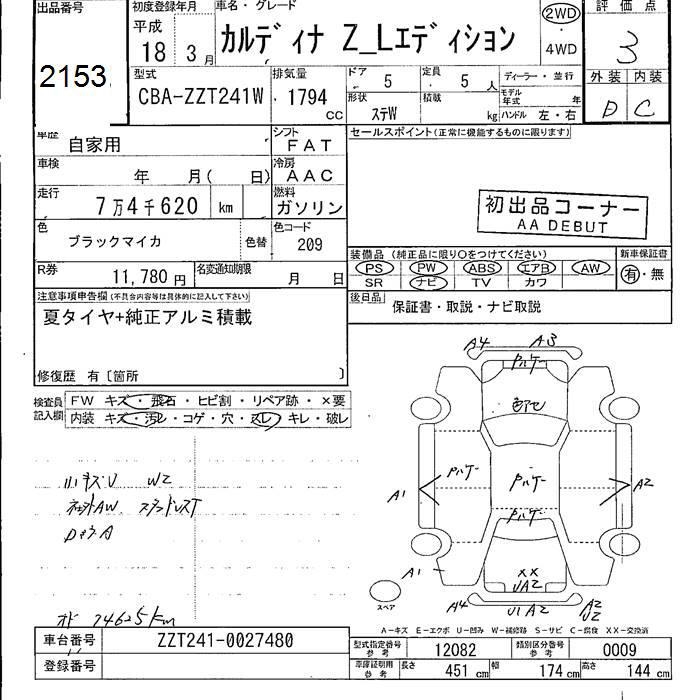 出品番号
2153
初度登録年月
平成
18 3 月
車名・グレード
カルディナ Z_Lエディション
2WD
・
4WD
評価点
3
外装 内装
D C
型式
CBA-ZZT241W
排気量
1794
CC
ドア
5
定員
5 人
形状
ステW
積載
kg
ディーラー・並行
モデル
年式 年
ハンドル 左・右
車歴
自家用
シフト
FAT
車検
年 月( 日)
冷房
AAC
走行
7万4千620 km
燃料
ガソリン
色
ブラックマイカ
色替
色コード
209
R券
11,780 円
名変通知期限
月 日
セールスポイント(正常に機能するものに限ります)
初出品コーナー
AA DEBUT
装備品(純正品に限り○をつけてください)
PS PW ABS エアB AW
SR ナビ TV カワ
新車保証書
有・無
後日品
保証書・取説・ナビ取説
注意事項申告欄(不具合内容等は具体的に記入して下さい)
夏タイヤ+純正アルミ積載
修復歴 有〔箇所 〕
検査員
記入欄
FW キズ・飛石・ヒビ割・リペア跡・×要
内装 キズ・汚レ・コゲ・穴・スレ・キレ・破レ
小キズU W2
社外AW スタッドレスT
オド 74625km
A4 A3
A1 A2
A1
XX
UA2
A4 U1 A2 A2
U2
スペア
A-キズ E-エクボ U-凹み W-補修跡 S-サビ C-腐食 XX-交換済
車台番号
ZZT241-0027480
登録番号
型式指定番号
参考
12082
類別区分番号
参考
0009
車庫証明用
参考
長さ 451 cm 幅 174 cm 高さ 144 cm